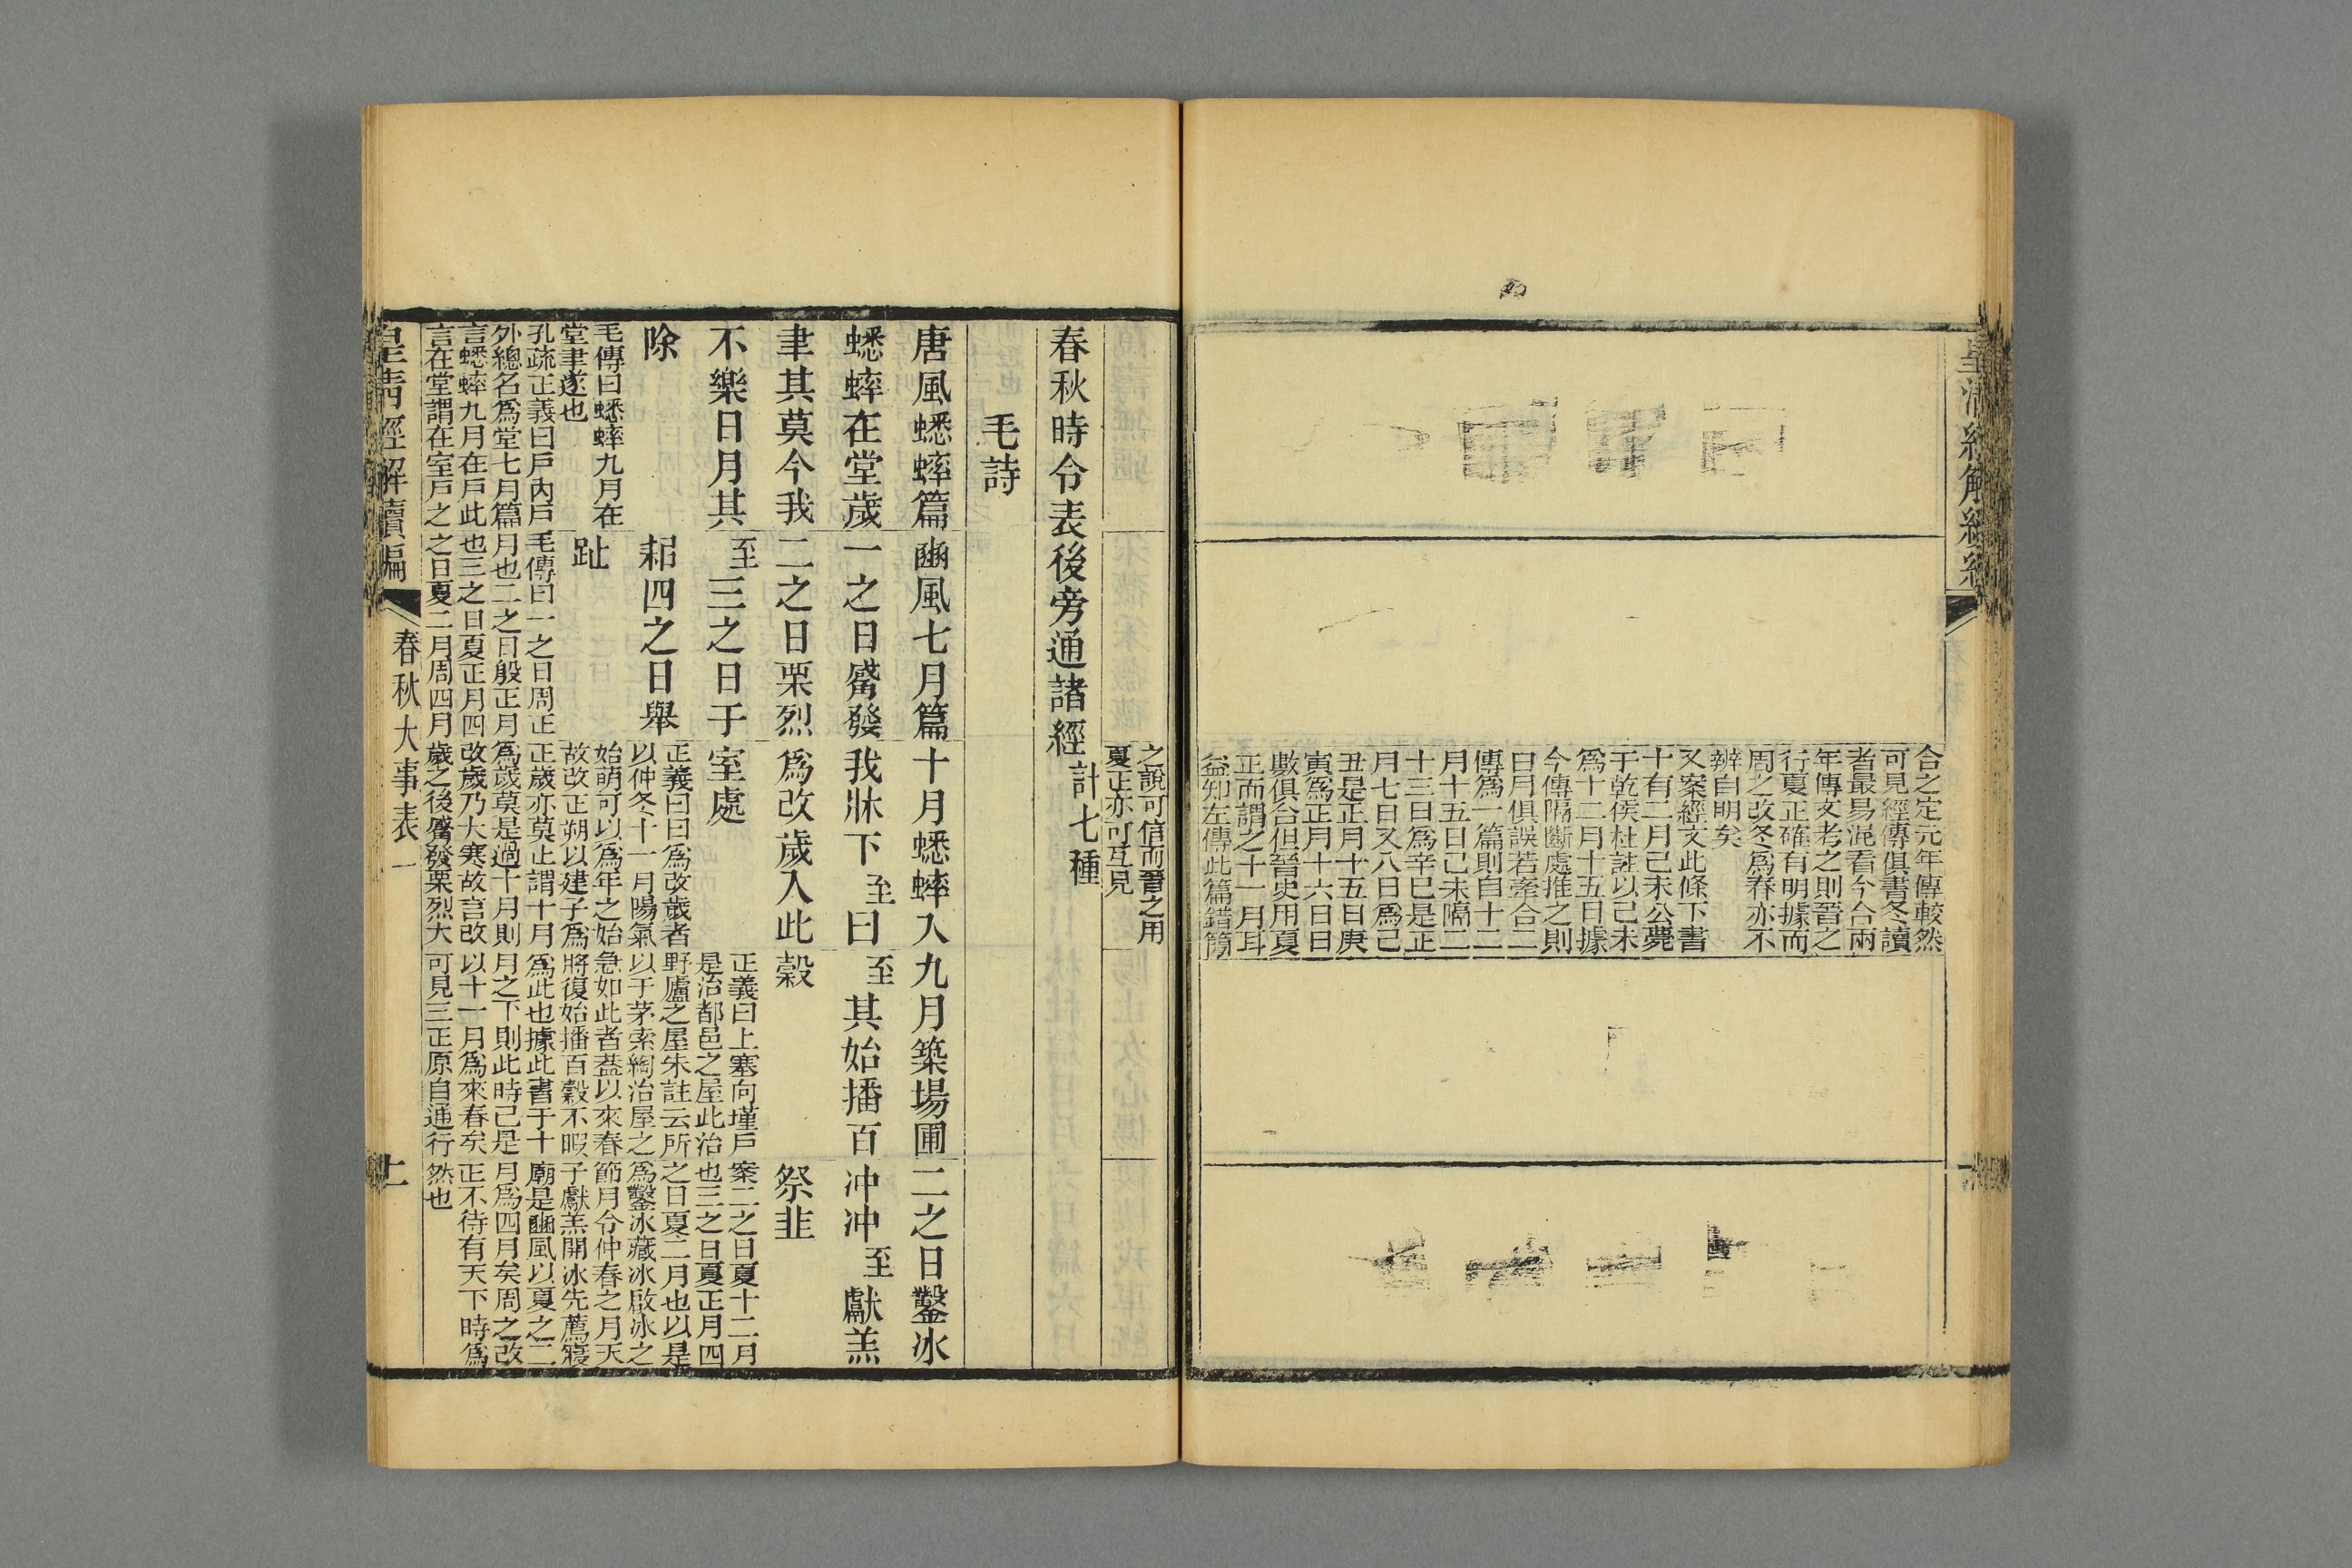 皇清經解續編
合之定元年傳較然
可見經傳俱書冬讀
者最易混看今合兩
年傳文考之則晉之
行夏正確有明據而
周之改冬爲春亦不
辨自明矣
又案經文此條下書
十有二月己未公薨
于乾侯杜註以己未
爲十二月十五日據
今傳隔斷處推之則
日月俱誤若牽合二
傳爲一篇則自十二
月十五日己未隔二
十三日爲辛巳是正
月七日又八日爲己
丑是正月十五日庚
寅爲正月十六日日
數俱合但晉史用夏
正而謂之十一月耳
益知左傳此篇錯簡
之說可信而晉之用
夏正亦可互見
春秋時令表後旁通諸經計七種
毛詩
唐風蟋蟀篇
蟋蟀在堂歲
聿其莫今我
不樂日月其
除
毛傳曰蟋蟀九月在
堂聿遂也
孔疏正義曰戶內戶
外總名爲堂七月篇
言蟋蟀九月在戶此
言在堂謂在室戶之
豳風七月篇
一之日觱發
二之日栗烈
至三之日于
耜四之日舉
趾
毛傳曰一之日周正
月也二之日殷正月
也三之日夏正月四
之日夏二月周四月
十月蟋蟀入
我牀下至曰
爲改歲入此
室處
正義曰曰爲改歲者
以仲冬十一月陽氣
始萌可以爲年之始
故改正朔以建子爲
正歲亦莫止謂十月
爲歲莫是過十月則
改歲乃大寒故言改
歲之後觱發栗烈大
九月築場圃
至其始播百
穀
正義曰上塞向墐戶
是治都邑之屋此治
野廬之屋朱註云所
以于茅索綯治屋之
急如此者葢以來春
將復始播百穀不暇
爲此也據此書于十
月之下則此時已是
以十一月爲來春矣
可見三正原自通行
二之日鑿冰
冲冲至獻羔
祭韭
案二之日夏十二月
也三之日夏正月四
之日夏二月也以是
爲鑿冰藏冰啟冰之
節月令仲春之月天
子獻羔開冰先薦寢
廟是豳風以夏之二
月爲四月矣周之改
正不待有天下時爲
然也
皇清經解續編
春秋大事表一